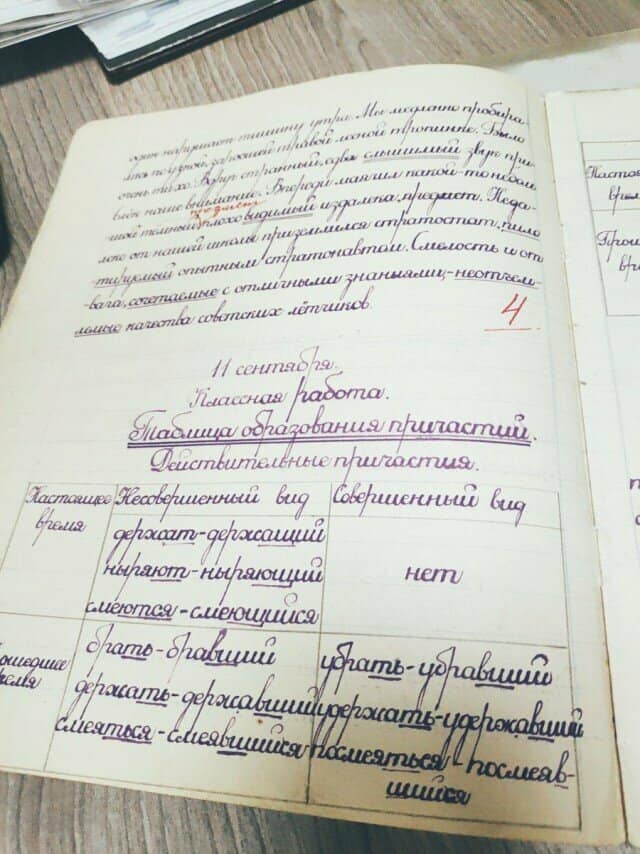 один нарушает тишину утра. Мы медленно пробира-
лись по узкой, заросшей травой лесной тропинке. Было
очень тихо. Вдруг странный, едва слышимый звук при-
влёк наше внимание. Впереди маячил какой-то неболь-
шой темный, плохо видимый издалека, предмет. Неда-
предмет
леко от нашей школы приземлился стратостат, пило-
тируемый опытным стратонавтом. Смелость и от-
вага, сочетаемые с отличными знаниями, - неотъем-
лемые качества советских лётчиков.
4
11 сентября.
Классная работа.
Таблица образования причастий.
Действительные причастия.
Настоящее время
Несовершенный вид
Совершенный вид
держат - держащий
ныряют - ныряющий
смеются - смеющийся
нет
брать - бравший
держать - державший
смеяться - смеявшийся
убрать - убравший
удержать - удержавший
посмеяться - посмеяв-
шийся